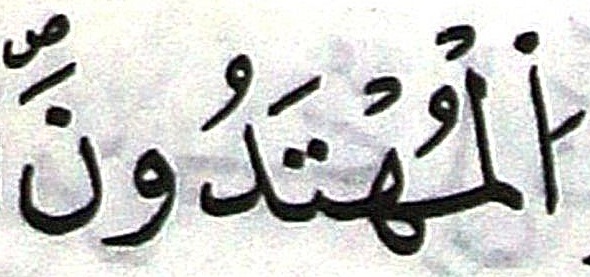 اَ۬لْمُهْتَدُونَۖ